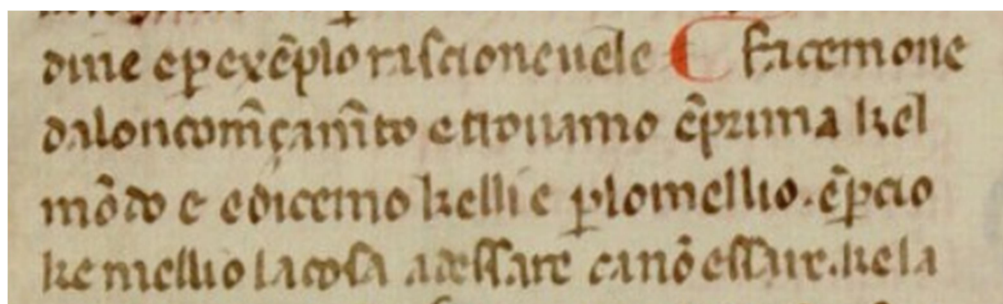 diue e ꝑ exẽplo rascioneuele ¶ facemone
daloncom̃çam̃to e trouamo ẽprima kel
mõdo e edicemo kelli e ꝑlomellio. ẽꝑcio
ke mellio lacosa adessare canõ essare. kela